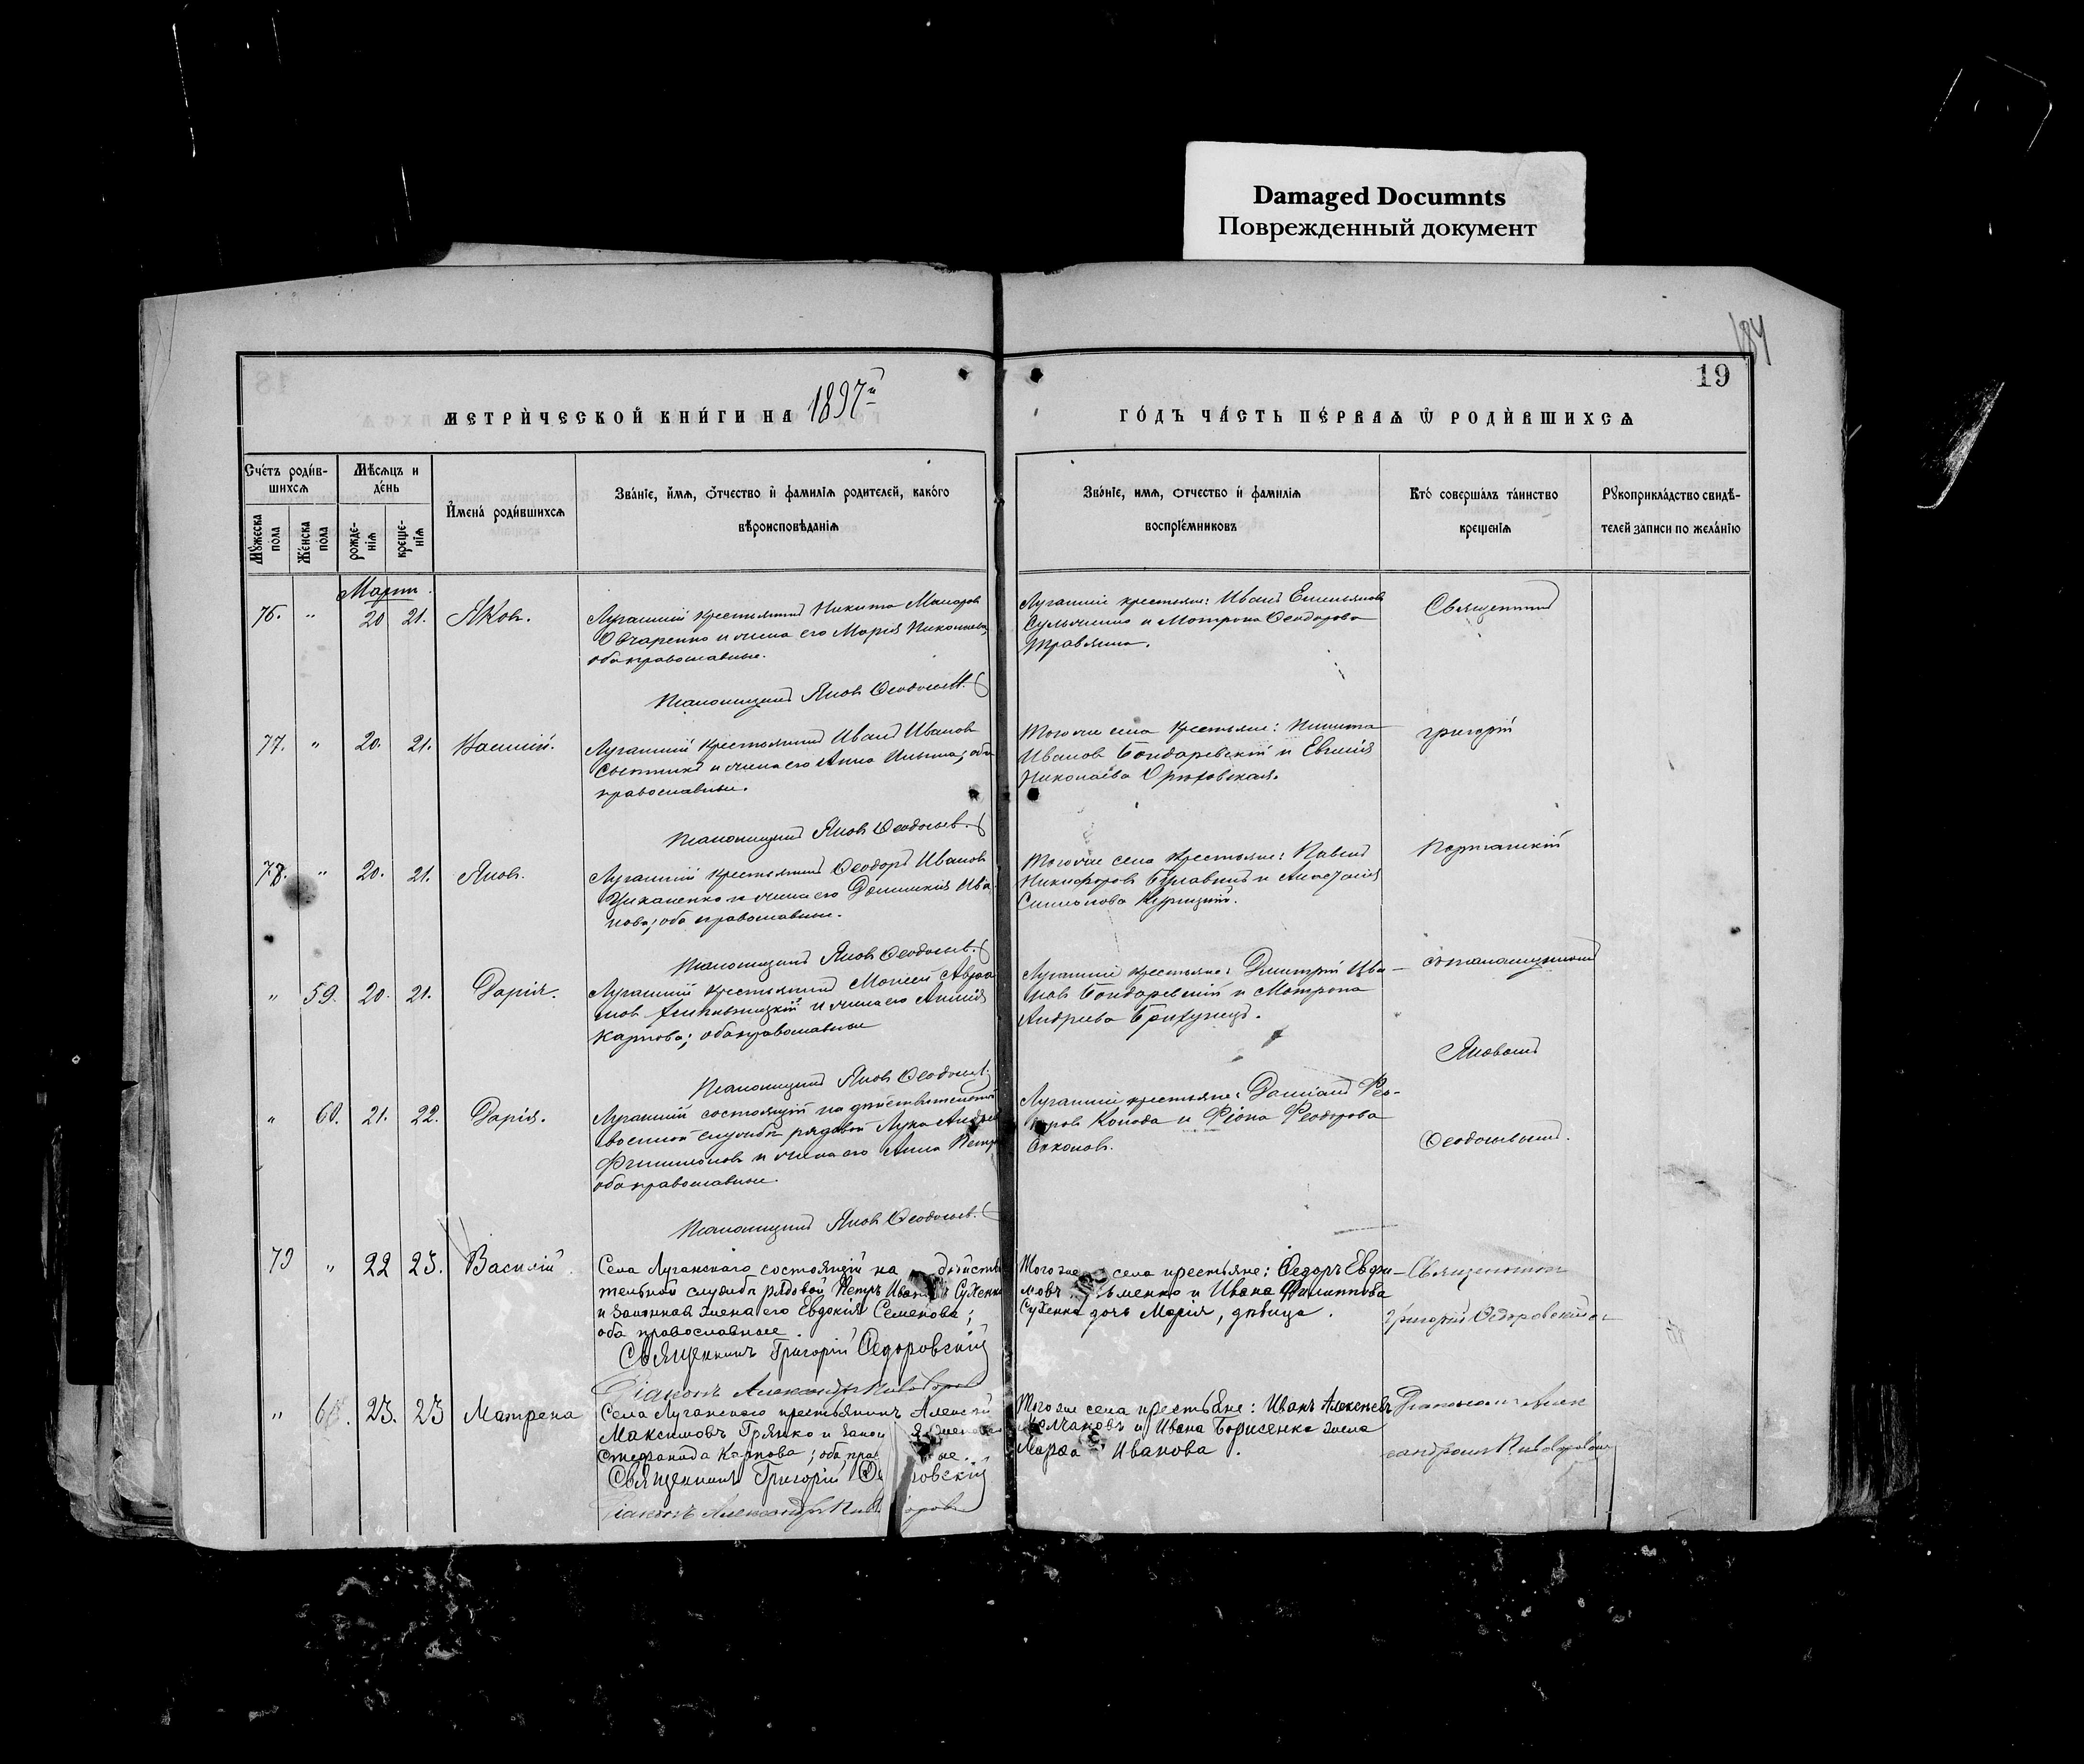 Damaged Documnts
Поврежденный документ
184
19
МЕТРИ́ЧЕСКОЙ КНИ́ГИ НА 1897й
ГО́ДЪ ЧА́СТЬ ПЕ́РВАѦ Ѿ РОДИ́ВШИХСѦ
Сче́тъ роди́в-
шихсѧ
Мѣ́сѧцъ и
де́нь
Мꙋ́жеска
пола
Же́нска
пола
рожде-
нїѧ
креще-
нїѧ
И҆мена̀ роди́вшихсѧ
Зва́нїе, и҆́мѧ, ѻ҆́тчество и҆ фамилїѧ родителей, како́го
вѣроисповѣданїѧ
Зва́нїе, имѧ, ѻтчество и҆ фамилїѧ
воспрїе́мниковъ
Кто̀ соверша́лъ та́инство
креще́нїѧ
Рꙋкоприкла́дство свидѣ́-
телей записи по жела́нїю
Мартъ
76. " 20 21. Яковъ.
Луганскій крестьянинъ Никита Макаровъ
Овчаренко и жена его Марія Николаева,
оба православные.
Псаломщикъ Яковъ Ѳеодосьев.
Луганскіе крестьяне: Иванъ Емельяновъ
и Матрона Ѳеодорова
Священникъ
77. " 20. 21. Василій.
Луганскій крестьянинъ Иванъ Ивановъ
и жена его Анна Ильина; оба
православные.
Псаломщикъ Яковъ Ѳеодосьев.
Того же села крестьяне: Никита
Ивановъ Бондаревскій и Евгенія
Николаева Орѣховская.
Григорій
78. " 20. 21. Яковъ.
Луганскій крестьянинъ Ѳеодоръ Ивановъ
Циханенко и жена его Домникія Ива-
нова; оба православные.
Псаломщикъ Яковъ Ѳеодосьев.
Того же села крестьяне: Павелъ
Никифоровъ и Анастасія
Симонова
" 59. 20. 21. Дарія.
Луганскій крестьянинъ Моисей Авраа-
мовъ и жена его
Карпова; оба православные
Псаломщикъ Яковъ Ѳеодосьев.
Луганскіе крестьяне: Дмитрій Ива-
новъ Бондаревскій и Матрона
Андреева
съ псаломщикомъ
Яковомъ
" 60. 21. 22. Дарія.
Луганскій состоящій на дѣйствительной
военной службѣ рядовой Лука Андреев
Филимоновъ и жена его Анна Петр
оба православные.
Псаломщикъ Яковъ Ѳеодосьев.
Луганскіе крестьяне: Даміанъ Ѳео-
доровъ и Ѳеодорова
Соколовъ.
Ѳеодосьевымъ.
79 " 22 23. Василій.
Села Луганскаго состоящій на дѣйстви
тельной службѣ рядовой Петръ Иван Сухенко
и законная жена его Евдокія Семенова;
оба православные.
Священникъ Григорій Ѳедоровскій
Діаконъ Александръ Пивоваров
Того же села крестьяне: Ѳедоръ Евфи-
мовъ ьменко и Ивана Филиппова
Сухенко дочь Марія, дѣвица.
Священникъ
Григорій Ѳедоровскій с
" 61. 23. 23 Матрена
Села Луганскаго крестьянинъ Алексѣй
Максимовъ Грянко и закон я жена его
Стефанида Карпова; оба пра ные.
Священникъ Григорій Ѳе ровскій
Діаконъ Александръ Пив оровъ
Того же села крестьяне: Иванъ Алексѣевъ
Колчаковъ и Ивана Борисенко жена
Марѳа Иванова.
Діакономъ Алек
сандромъ Пивоваровымъ